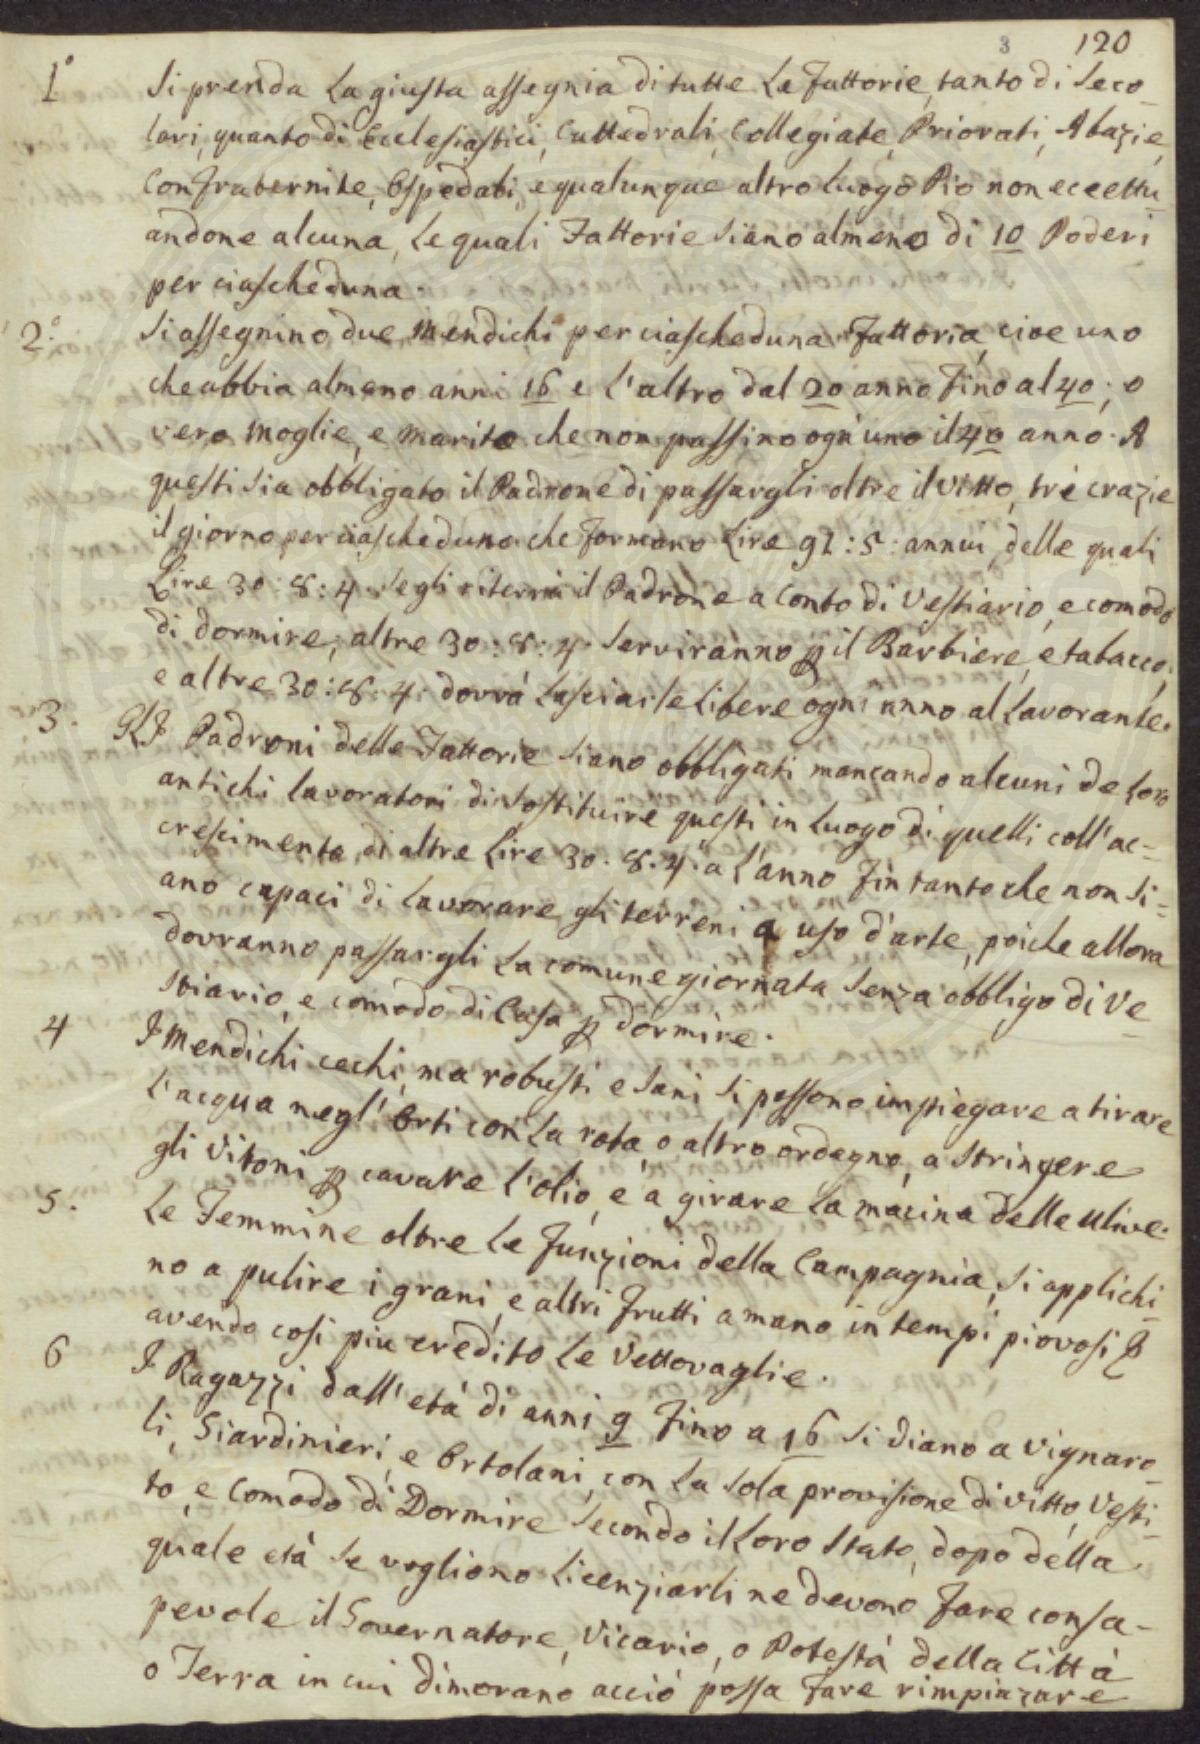 3 120
1° Si prenda la giusta assegnia di tutte le Fattorie, tanto di Seco-
lari, quanto di Ecclesiastici, Cattedrali, Collegiate, Priorati, Abazie,
Confraternite, Ospedali, e qualunque altro luogo Pio non eccettu-
andone alcuna, le quali Fattorie siano almeno di 10 Poderi
per ciascheduna.
2° Si assegnino due Mendichi per ciascheduna Fattoria, cioe uno
che abbia almeno anni 16 e l'altro dal 20 anno fino al 40; o
vero Moglie, e Marito che non passino ogn'uno il 40 anno. A
questi sia obbligato il Padrone di passargli oltre il vitto, tré crazie
il giorno per ciascheduno che formano Lire 91:5: annui, delle quali
Lire 30:8:4. se gli riterrà il Padrone a Conto di Vestiario, e comodo
di dormire; altre 30:8:4. serviranno p il Barbiere, e tabacco,
e altre 30:8:4: dovrà lasciarle libere ogni anno al lavorante.
3. Gl'I Padroni delle Fattorie siano obbligati mancando alcuni de loro
antichi lavoratori di sostituire questi in luogo di quelli coll'ac-
crescimento di altre Lire 30.8.4. a l'anno fin tanto che non si-
ano capaci di lavorare gli terreni a uso d'arte, poiche allora
dovranno passargli la comune giornata senza obbligo di Ve-
stiario, e comodo di Casa p dormire.
4 I Mendichi cechi, ma robusti e sani si possono impiegare a tirare
l'acqua negl'Orti con la rota, o altro ordegno, a stringere
gli Vitoni p cavare l'olio, e a girare la macina delle ulive.
5. Le Femmine oltre le funzioni della Campagnia, si applichi-
no a pulire i grani, e altri frutti a mano in tempi piovosi p
avendo cosi piu credito le Vettovaglie.
6 I Ragazzi dall'età di anni 9 fino a 16 si diano a Vignaro-
li, Giardinieri, e Ortolani, con la sola provisione di vitto, Vesti-
to, e Comodo di Dormire secondo il loro stato, dopo della
quale età se vogliono licenziarli ne devono fare consa-
pevole il Governatore, Vicario, o Potestà della Città
o Terra in cui dimorano acciò possa fare rimpiazzare